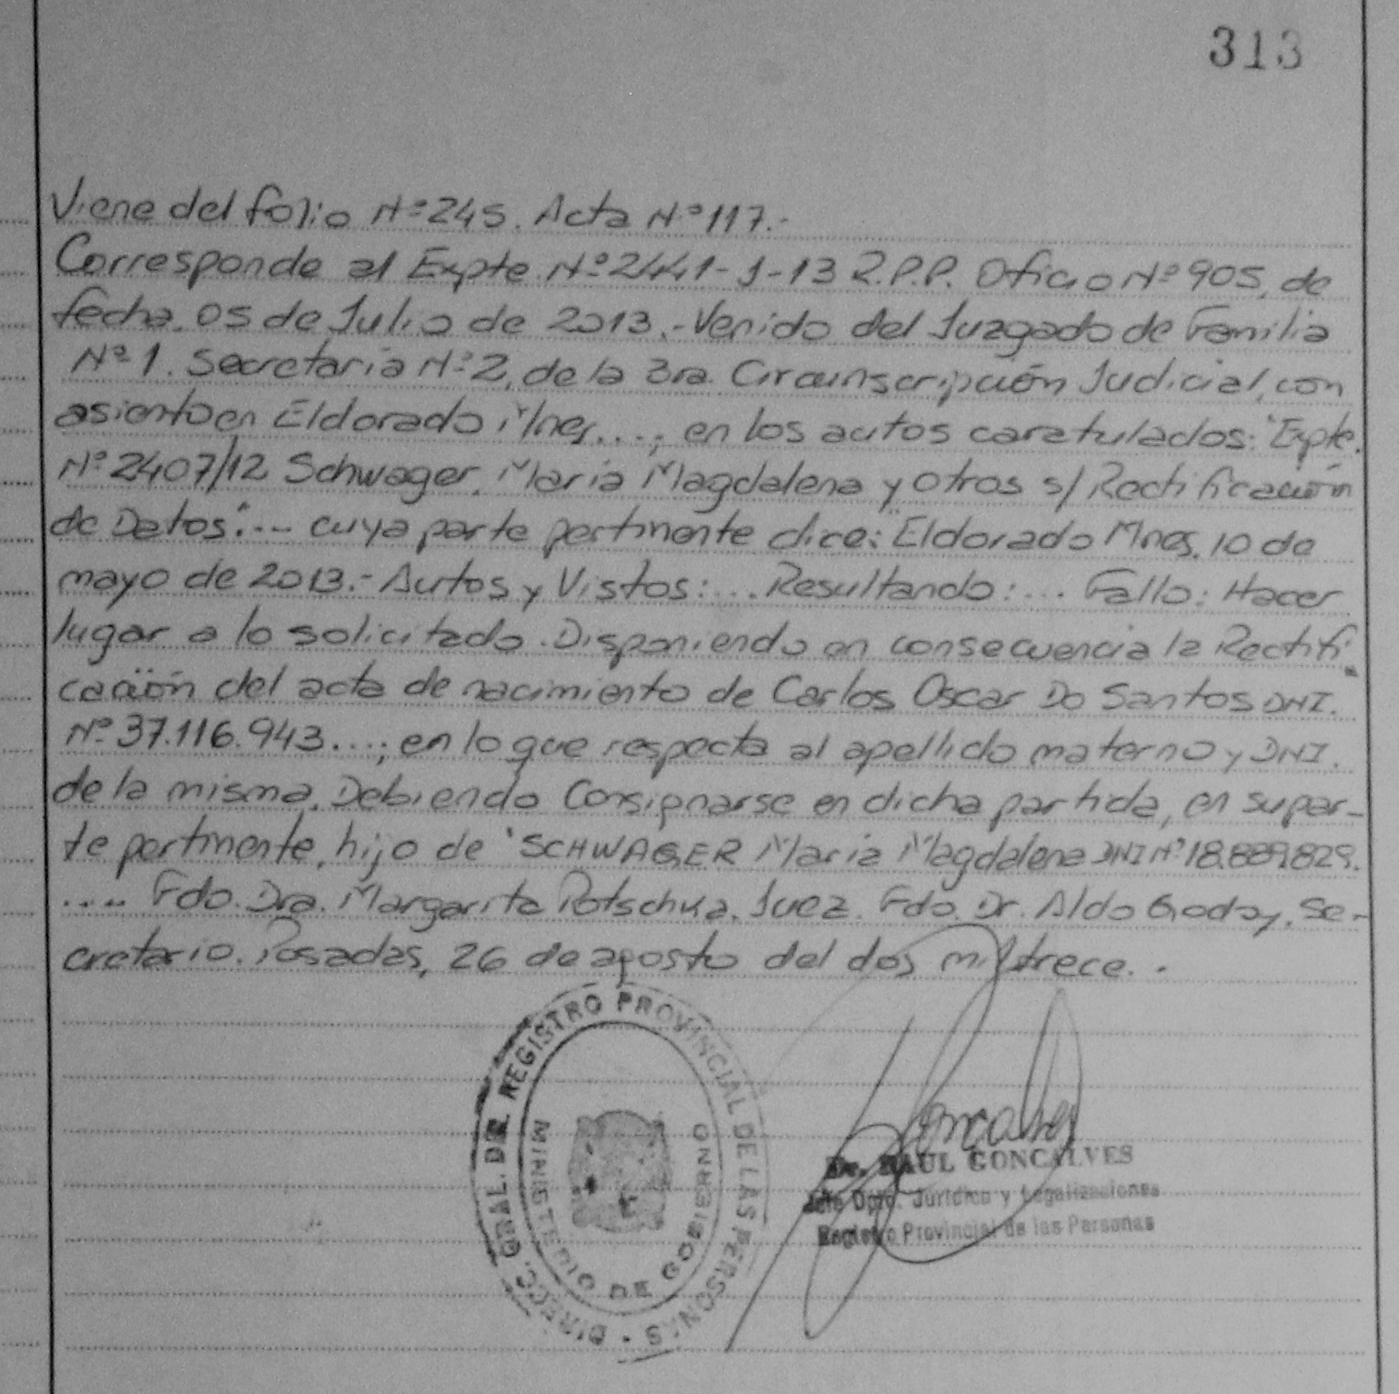 313
Viene del folio Nº 245. Acta Nº 117.-
Corresponde al Expte Nº 2441-J-13 R.P.P. Oficio Nº 905, de
fecha 05 de Julio de 2013.- Venido del Juzgado de Familia
Nº 1. Secretaría Nº 2, de la 3ra. Circunscripción Judicial, con
asiento en Eldorado Mnes...., en los autos caratulados: "Expte.
Nº 2407/12 Schwager, María Magdalena y otros s/ Rectificación
de Datos"... cuya parte pertinente dice: "Eldorado Mnes, 10 de
mayo de 2013.- Autos y Vistos:... Resultando:... Fallo: Hacer
lugar a lo solicitado. Disponiendo en consecuencia la Rectifi
cación del acta de nacimiento de Carlos Oscar Do Santos DNI.
Nº 37.116.943...; en lo que respecta al apellido materno y DNI.
de la misma. Debiendo Consignarse en dicha partida, en su par-
te pertinente, hijo de "SCHWAGER María Magdalena DNI Nº 18.889.829.
.... Fdo. Dra. Margarita Potschka. Juez. Fdo. Dr. Aldo Godoy. Se-
cretario. Posadas, 26 de agosto del dos mil trece..
DIRECC. GRAL. DEL REGISTRO PROVINCIAL DE LAS PERSONAS
MINISTERIO DE GOBIERNO
Goncalves
Dr. RAUL GONCALVES
Jefe Dpto. Jurídico y Legalizaciones
Registro Provincial de las Personas